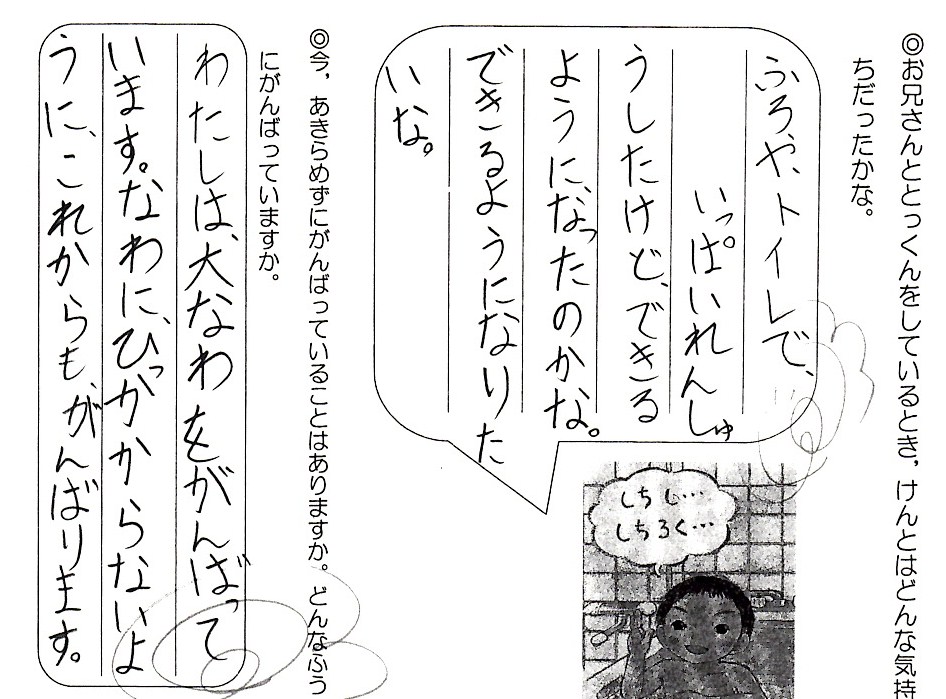 ◎お兄さんととっくんをしているとき，けんとはどんな気持
ちだったかな。
ふろや、トイレで、
いっぱいれんしゅ
うしたけど、できる
ように、なったのかな。
できるようになりた
いな。
しちし…
しちろく…
◎今，あきらめずにがんばっていることはありますか。どんなふう
にがんばっていますか。
わたしは、大なわをがんばって
います。なわに、ひっかからないよ
うに、これからも、がんばります。